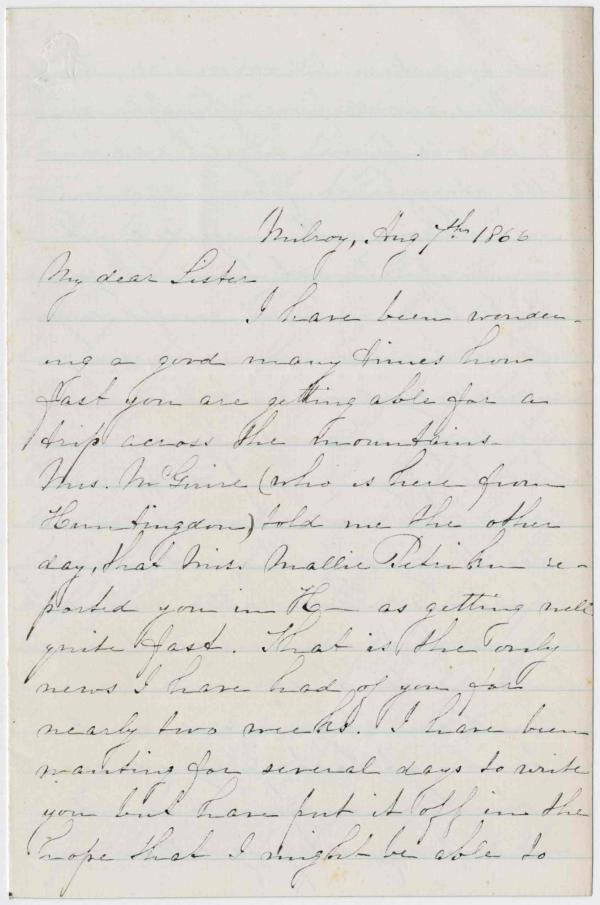 Milroy, Aug 7th 1866
My dear Sister
I have been wonder-
ing a good many times how
fast you are getting able for a
trip across the mountains.
Mrs. McGuire (who is here from
Huntingdon) told me the other
day, that Miss Mallie Petrikin re-
ported you in H— as getting well
quite fast. That is the only
news I have had of you for
nearly two weeks. I have been
wanting for several days to write
you but have put it off in the
hope that I might be able to